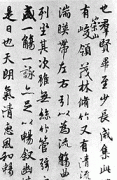 也羣賢畢至少長咸集
有崇山峻領茂林脩竹又有清
湍暎帶左右引以為流觴曲
列坐其次雖無絲竹管弦
盛一觴一詠亦足以暢敘幽
是日也天朗氣清惠風和暢